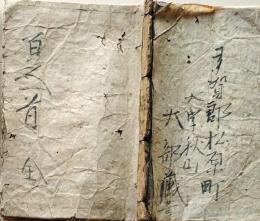 百人首全
多賀郡松原町
大字秋山
大部蔵